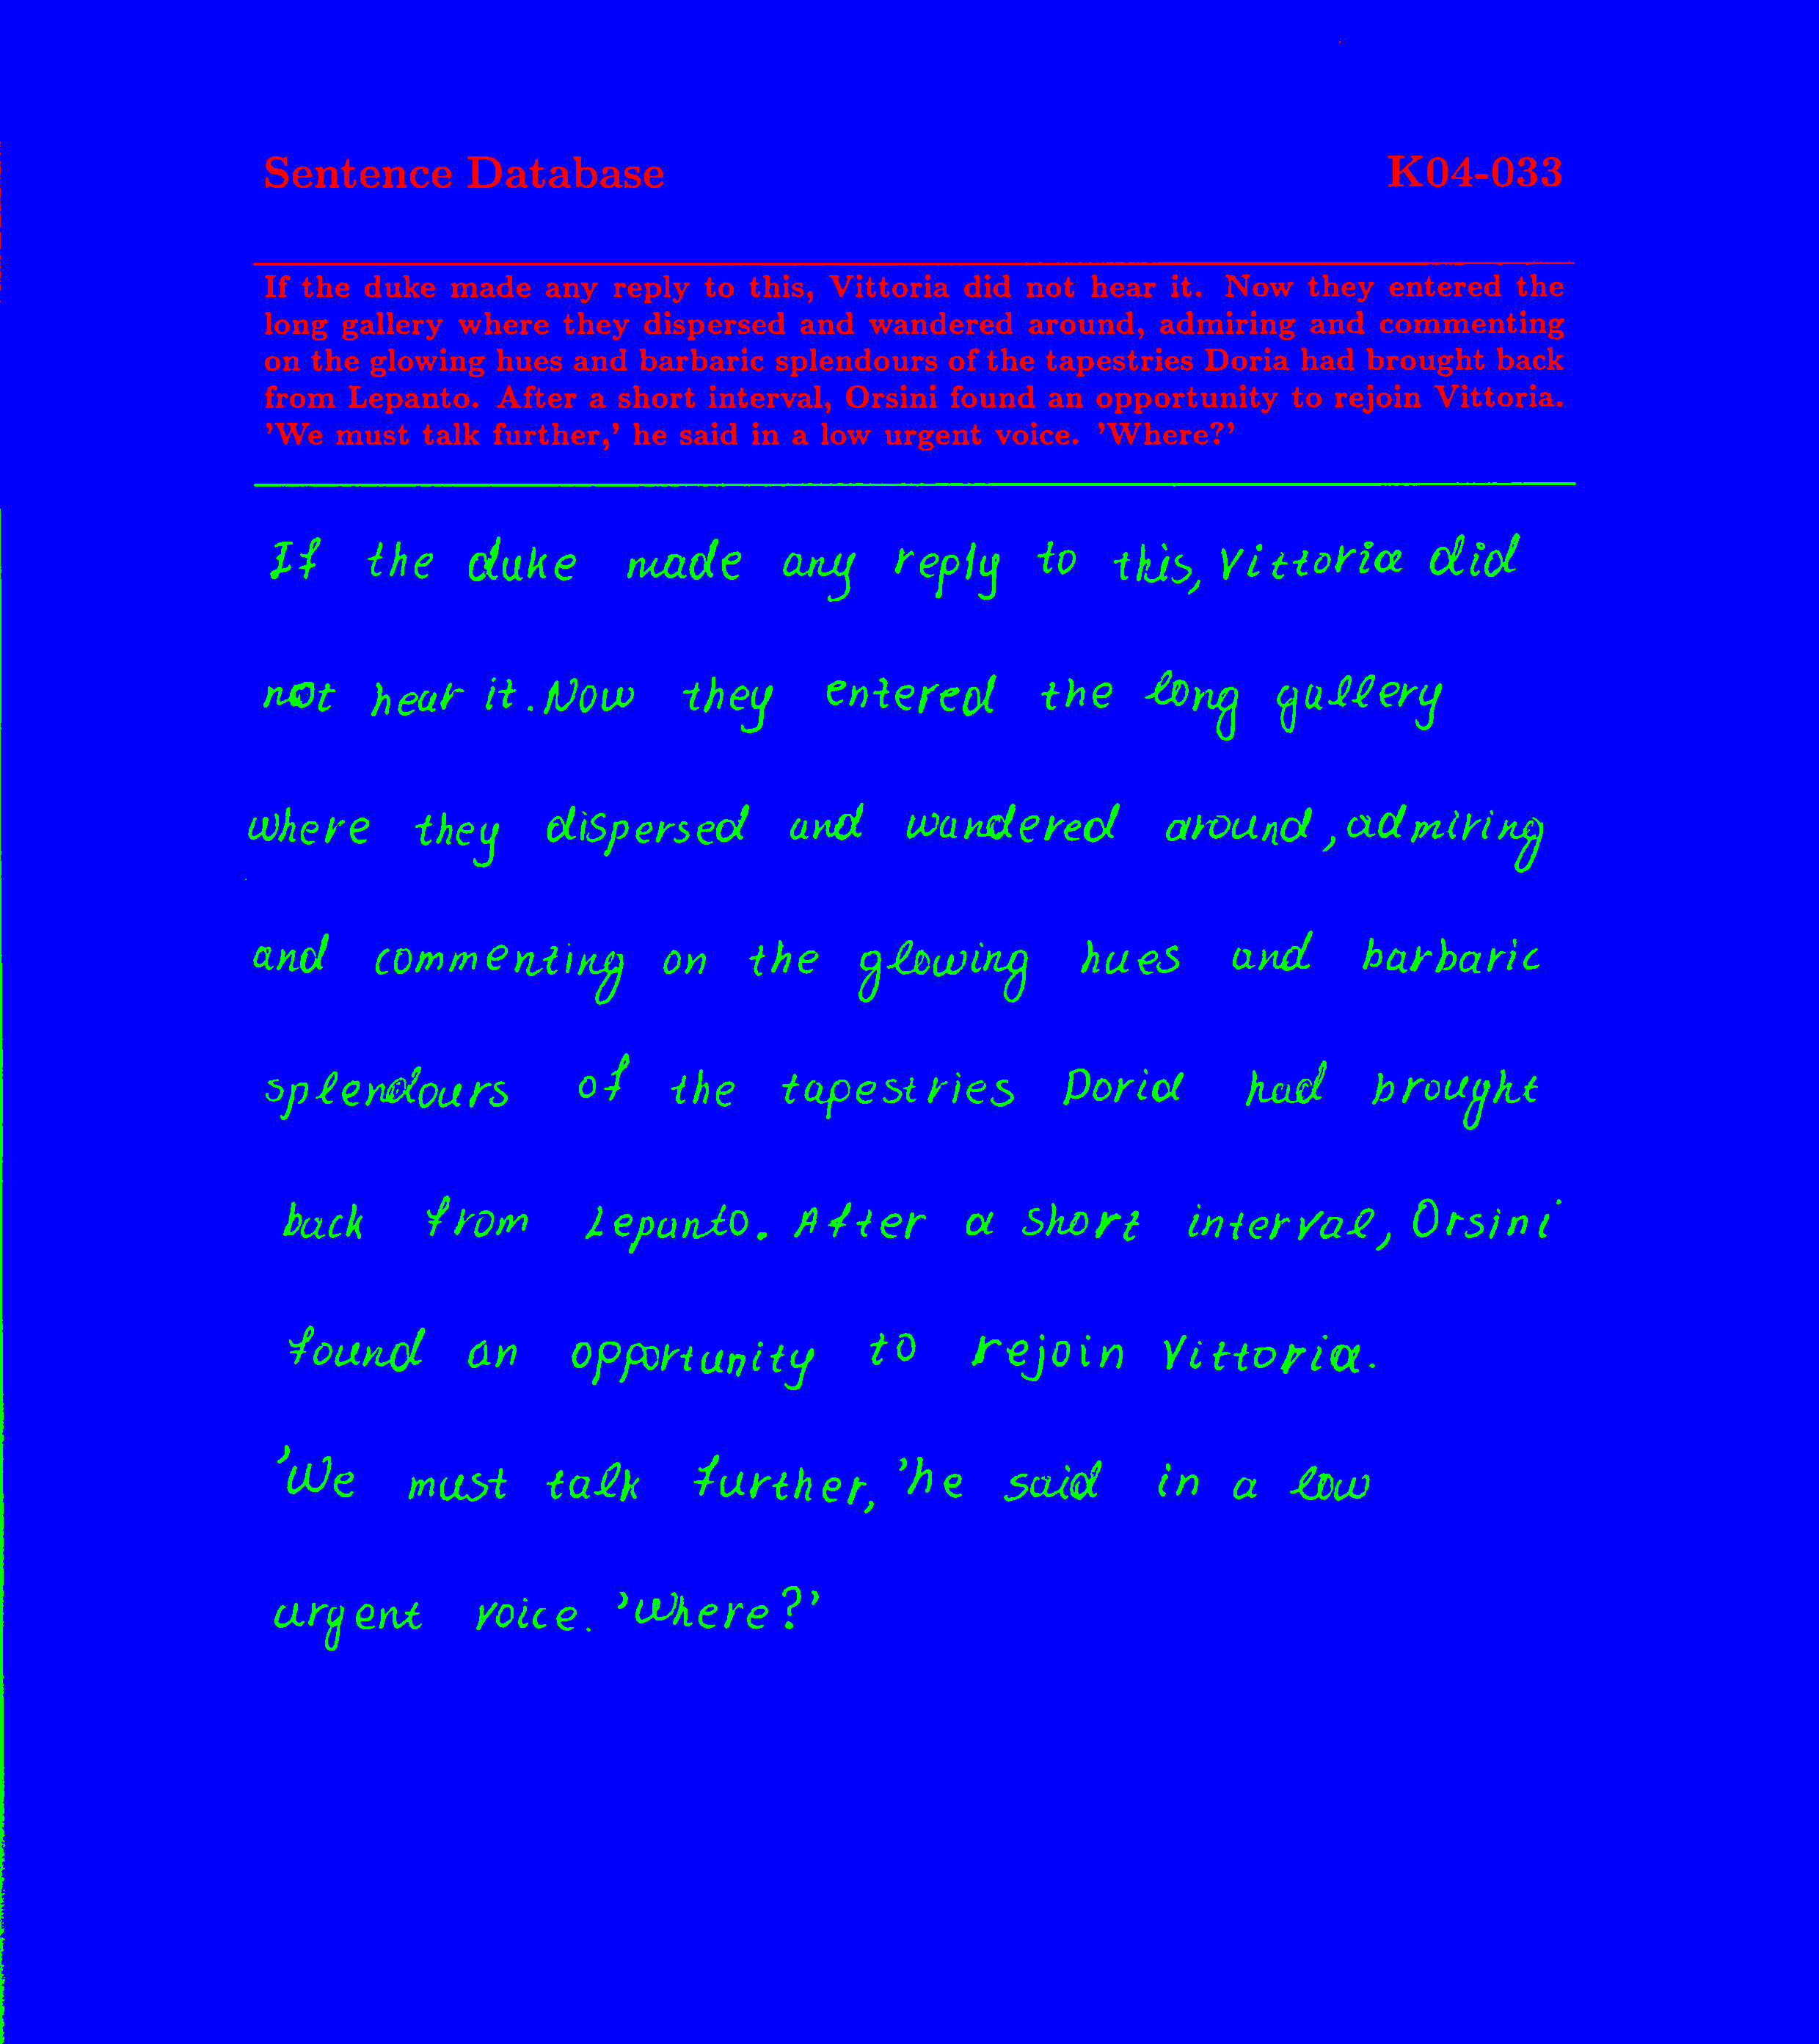 Sentence Database K04-033
If the duke made any reply to this, Vittoria did not hear it. Now they entered the
long gallery where they dispersed and wandered around, admiring and commenting
on the glowing hues and barbaric splendours of the tapestries Doria had brought back
from Lepanto. After a short interval, Orsini found an opportunity to rejoin Vittoria.
'We must talk further,' he said in a low urgent voice. 'Where?'
If the duke made any reply to this, Vittoria did
not hear it. Now they entered the long gallery
where they dispersed and wandered around, admiring
and commenting on the glowing hues and barbaric
splendours of the tapestries Doria had brought
back from Lepanto. After a short interval, Orsini
found an opportunity to rejoin Vittoria.
'We must talk further, 'he said in a low
urgent voice. 'Where?'